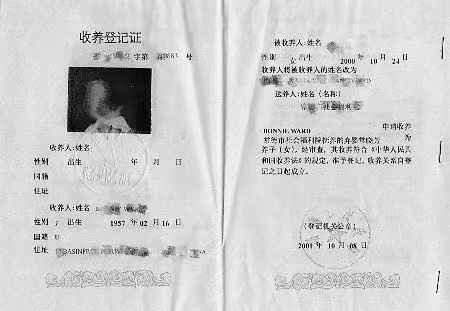 收养登记证
字第 9583 号
收养人:姓名
性别 出生 年 月 日
国籍
住址
收养人:姓名
性别 出生 1957 年 02 月 16 日
国籍 U
住址
被收养人:姓名
性别 女 出生 2000 年 10 月 24 日
收养人将被收养人的姓名改为
送养人:姓名(名称)
常 社会福利
申请收养
BONNIE WARD 为
常德市社会福利院抚养的弃婴常晓芳
养子(女),经审查,其收养符合《中华人民共
和国收养法》的规定,准予登记,收养关系自登
记之日起成立。
(登记机关公章)
2001 年 10 月 08 日